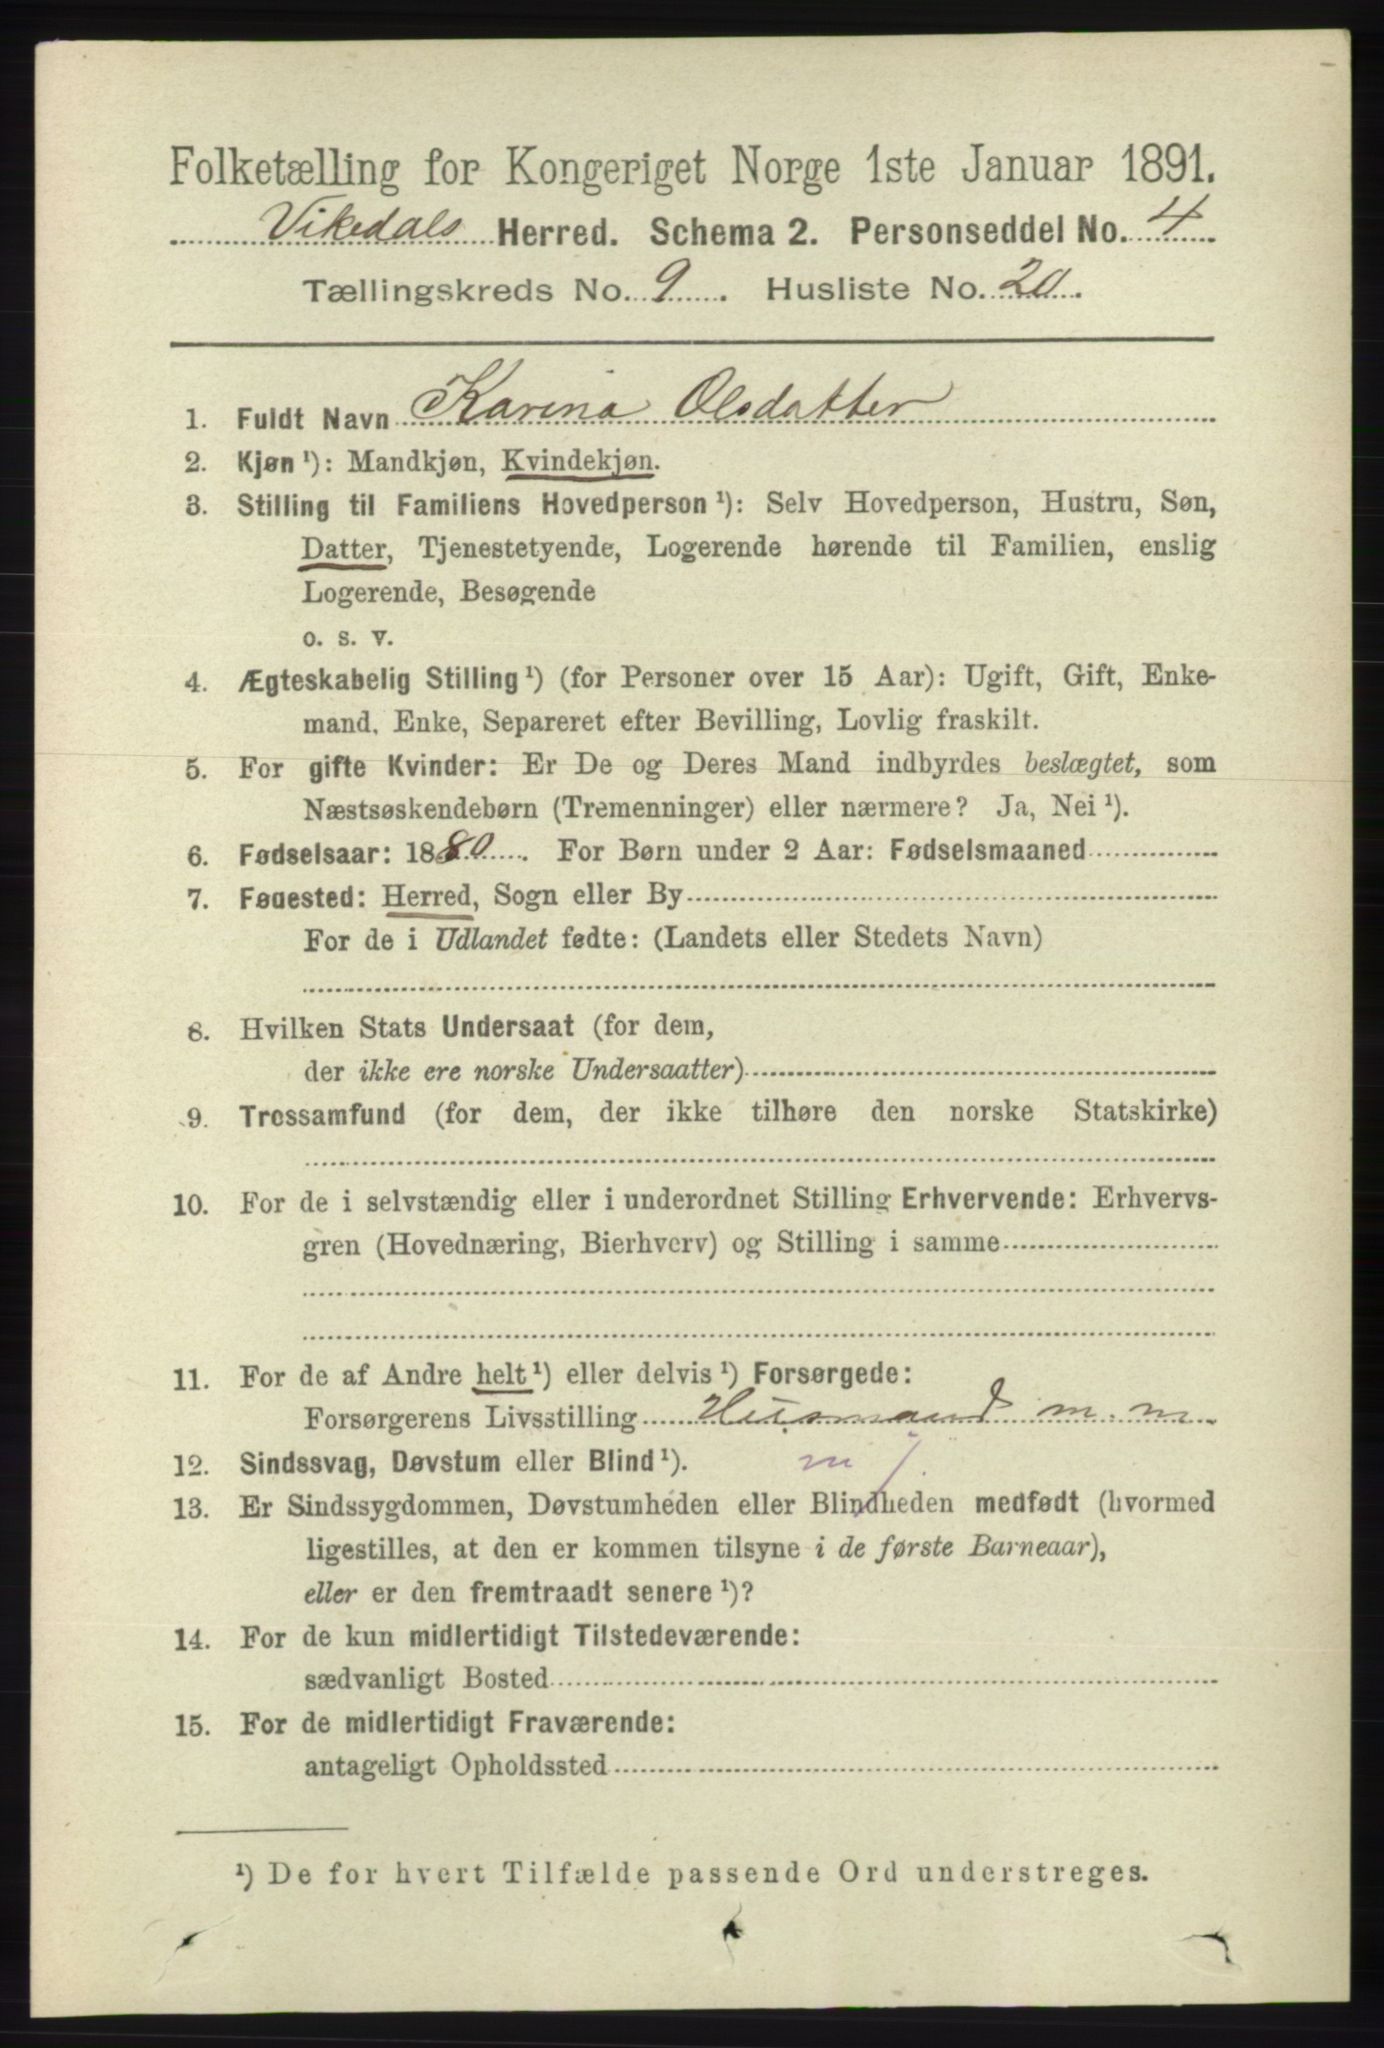 Folketælling for Kongeriget Norge 1ste Januar 1891.
Vikedals Herred. Schema 2. Personseddel No. 4
Tællingskreds No. 9. Husliste No. 20.
1. Fuldt Navn Karina Olsdatter
2. Kjøn ¹): Mandkjøn, Kvindekjøn.
3. Stilling til Familiens Hovedperson ¹): Selv Hovedperson, Hustru, Søn,
Datter, Tjenestetyende, Logerende hørende til Familien, enslig
Logerende, Besøgende
o. s. v.
4. Ægteskabelig Stilling ¹) (for Personer over 15 Aar): Ugift, Gift, Enke-
mand, Enke, Separeret efter Bevilling, Lovlig fraskilt.
5. For gifte Kvinder: Er De og Deres Mand indbyrdes beslægtet, som
Næstsøskendebørn (Tremenninger) eller nærmere? Ja, Nei ¹).
6. Fødselsaar: 1880. For Børn under 2 Aar: Fødselsmaaned
7. Fødested: Herred, Sogn eller By
For de i Udlandet fødte: (Landets eller Stedets Navn)
8. Hvilken Stats Undersaat (for dem,
der ikke ere norske Undersaatter)
9. Trossamfund (for dem, der ikke tilhøre den norske Statskirke)
10. For de i selvstændig eller i underordnet Stilling Erhvervende: Erhvervs-
gren (Hovednæring, Bierhverv) og Stilling i samme
11. For de af Andre helt ¹) eller delvis ¹) Forsørgede:
Forsørgerens Livsstilling Husmand m. m.
12. Sindssvag, Døvstum eller Blind ¹).
13. Er Sindssygdommen, Døvstumheden eller Blindheden medfødt (hvormed
ligestilles, at den er kommen tilsyne i de første Barneaar),
eller er den fremtraadt senere ¹)?
14. For de kun midlertidigt Tilstedeværende:
sædvanligt Bosted
15. For de midlertidigt Fraværende:
antageligt Opholdssted
¹) De for hvert Tilfælde passende Ord understreges.